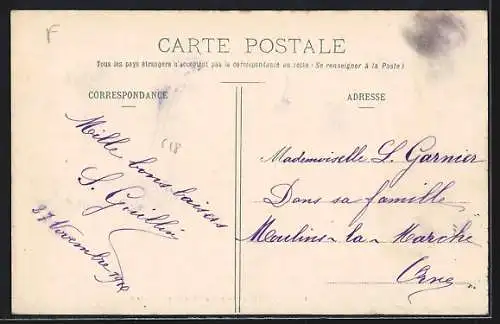 F
CARTE POSTALE
Tous les pays étrangers n'acceptent pas la correspondance au recto (Se renseigner à la Poste)
CORRESPONDANCE
Mille bons baisers
S. Guillin
27 Novembre
ADRESSE
Mademoiselle S. Garnier
Dans sa famille
Moulins-la-Marche
Orne